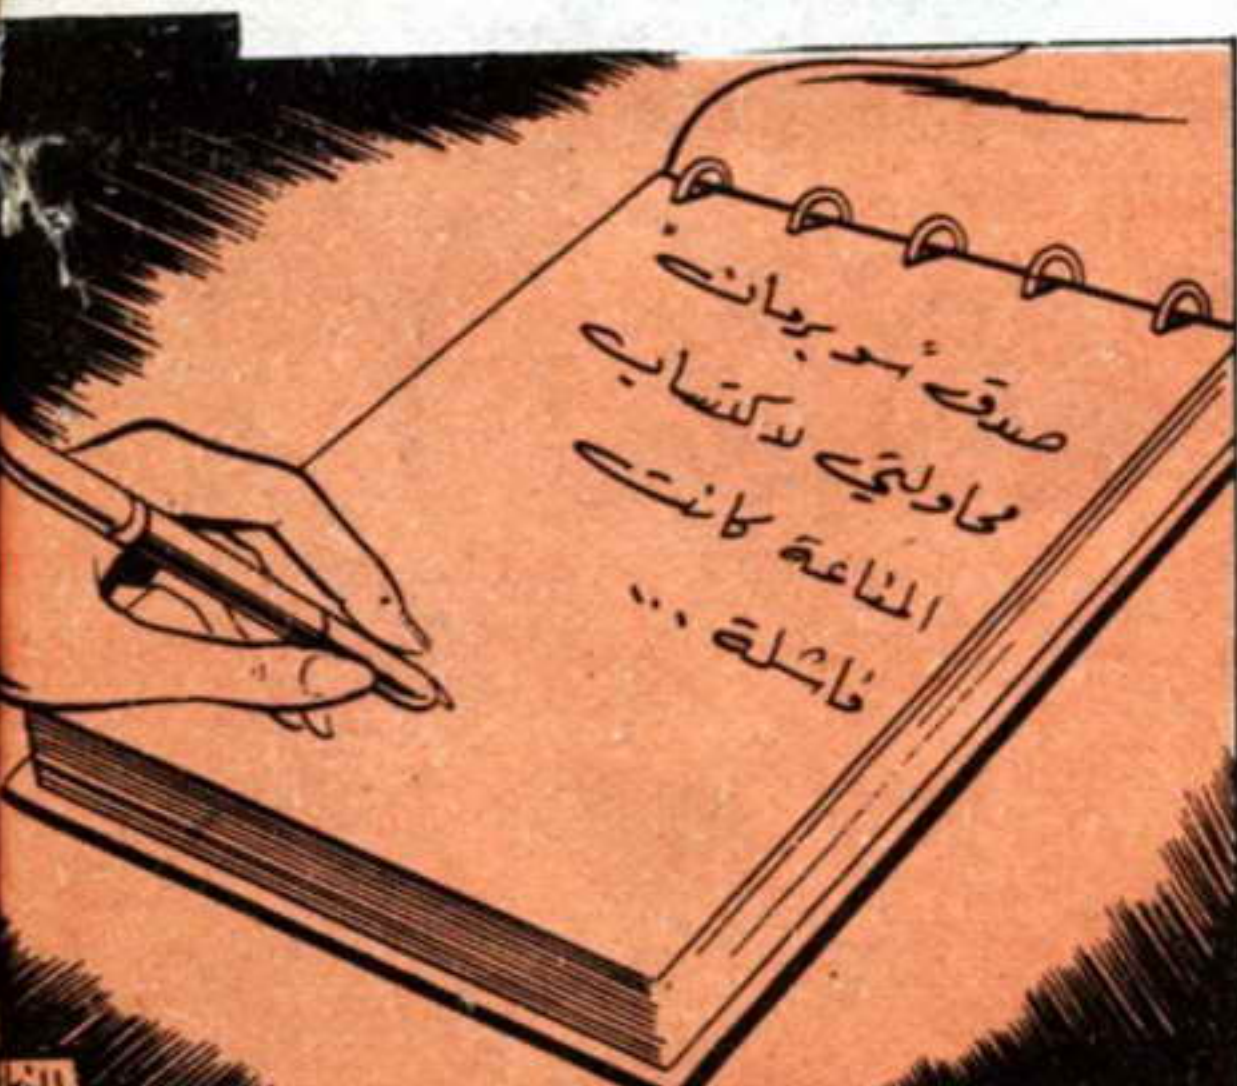 صدق سوبرمان :
محاولتي لاكتساب
المناعة كانت
فاشلة ...